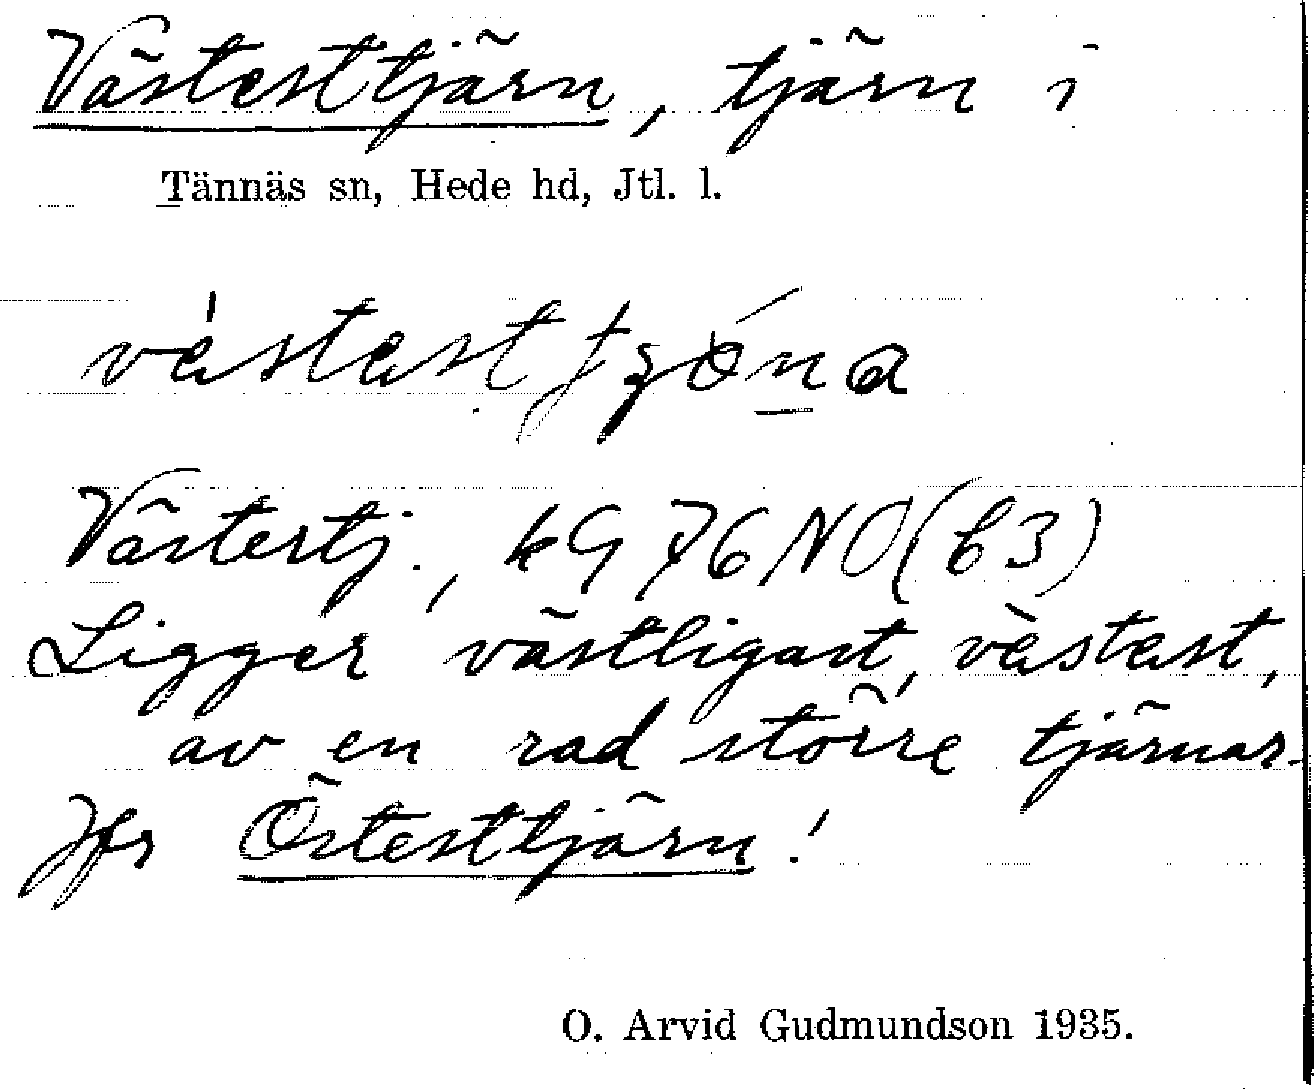 Västesttjärn, tjärn i
Tännäs sn, Hede hd, Jtl. l.
Västertj., kG 76 NO (b3)
Ligger västligast, vàstast,
av en rad större tjärnar.
Jfr Östesttjärn!
O. Arvid Gudmundson 1935.